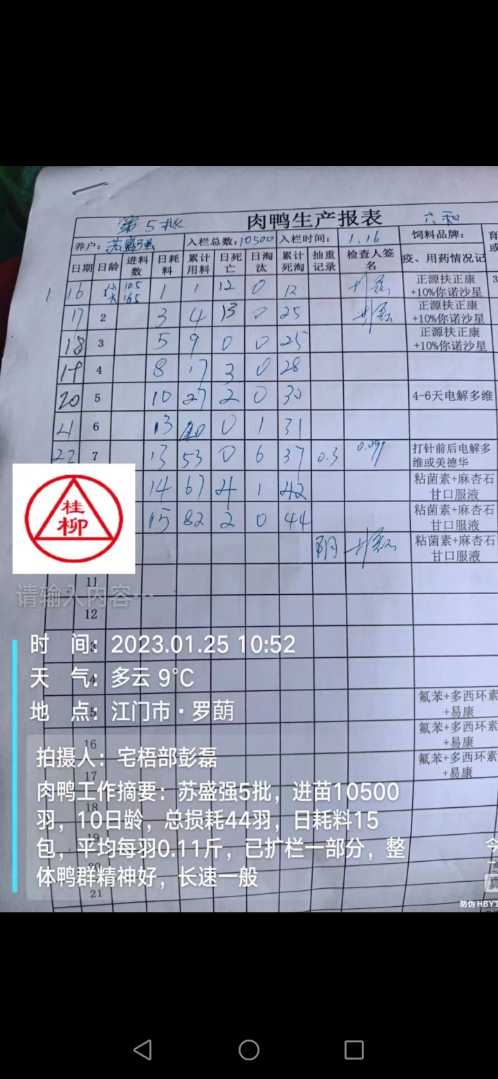 第5批 肉鸭生产报表 六和
养户: 苏盛强 入栏总数: 10500 入栏时间: 1.16 饲料品牌:
日期 日龄 进料数 日耗料 累计用料 日死亡 日淘汰 累计死淘 抽重记录 检查人签名 疫、用药情况记
16 105 165 1 1 12 0 12 正源扶正康+10%你诺沙星
17 2 3 4 13 0 25 正源扶正康+10%你诺沙星
18 3 5 9 0 0 25 正源扶正康+10%你诺沙星
19 4 8 17 3 0 28
20 5 10 27 2 0 30 4-6天电解多维
21 6 13 40 0 1 31
22 7 13 53 0 6 37 0.3 打针前后电解多维或美德华
14 67 4 1 42 粘菌素+麻杏石甘口服液
15 82 2 0 44 粘菌素+麻杏石甘口服液
粘菌素+麻杏石甘口服液
桂
柳
请输入内容…
11
12
时 间: 2023.01.25 10:52
天 气: 多云 9℃
地 点: 江门市·罗蓢
氟苯+多西环素+易康
16 氟苯+多西环素+易康
17 氟苯+多西环素+易康
18
19
21
拍摄人: 宅梧部彭磊
肉鸭工作摘要: 苏盛强5批，进苗10500
羽，10日龄，总损耗44羽，日耗料15
包，平均每羽0.11斤，已扩栏一部分，整
体鸭群精神好，长速一般